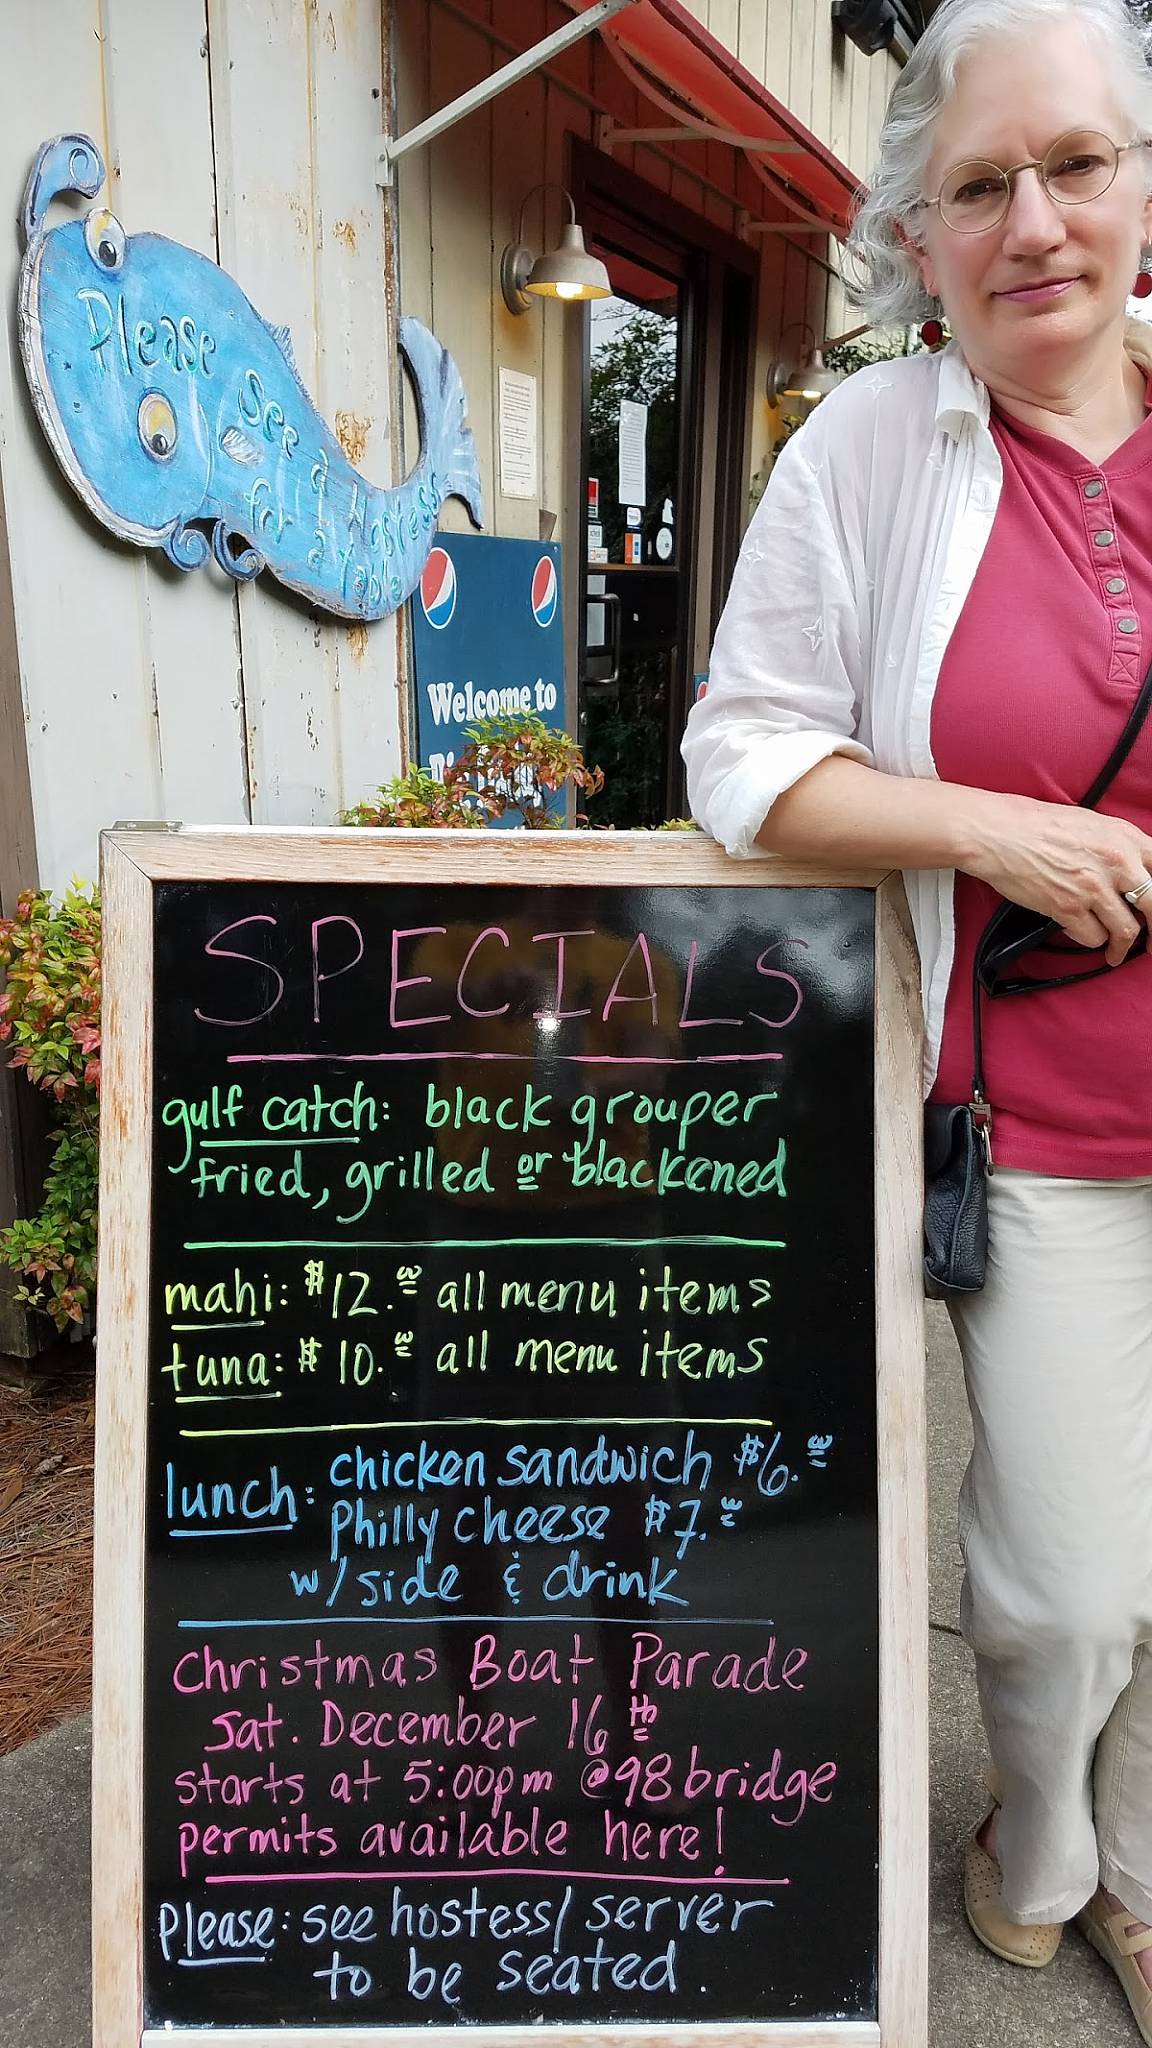 Please
See a
Hostess
for a table
Welcome to
SPECIALS
gulf catch: black grouper
fried, grilled or blackened
mahi: $12.00 all menu items
tuna: $10.00 all menu items
lunch: chicken sandwich $6.00
Philly cheese $7.00
w/ side & drink
Christmas Boat Parade
Sat. December 16th
starts at 5:00pm @98 bridge
permits available here!
Please: see hostess/server
to be seated.